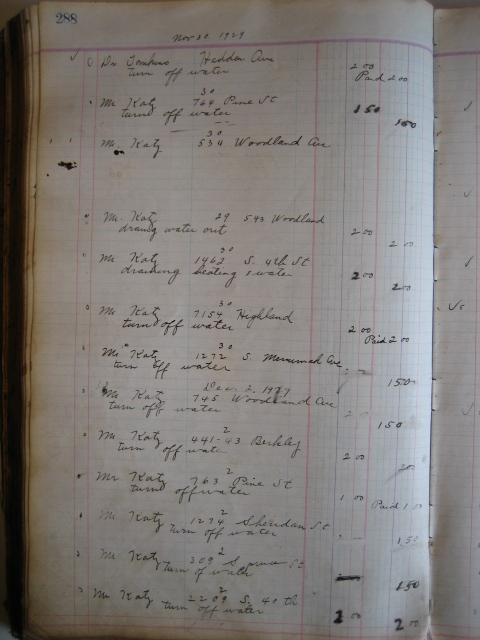 288
Nov 30 1929
Dr Tomkins Hedden Ave
turn off water 2 00
Paid 2 00
30
Mr Katz 764 Pine St
turnd off water 1 50
1 50
30
Mr Katz 534 Woodland Ave
Mr. Katz 29 543 Woodland
draing water out 2 00
2 00
30
Mr Katz 1462 S. 4th St
draining heating & water 2 00
2 00
30
Mr Katz 7154 Highland
turn off water 2 00
Paid 2 00
30
Mr Katz 1272 S. Ave
turn off water
1 50
Dec. 2, 1929
Mr Katz 745 Woodland Ave
turn off water 2
1 50
2
Mr Katz 441-43 Berkley
turn off water 2 00
2
Mr Katz 763 Pine St
turnd off water 1 00
Paid 1 00
2
Mr Katz 1274 Sheridan St
turn off water
1 50
2
Mr Katz 309 St
turn of water
1 50
2
Mr Katz 2209 S. 40th
turn off water 2 00
2 00